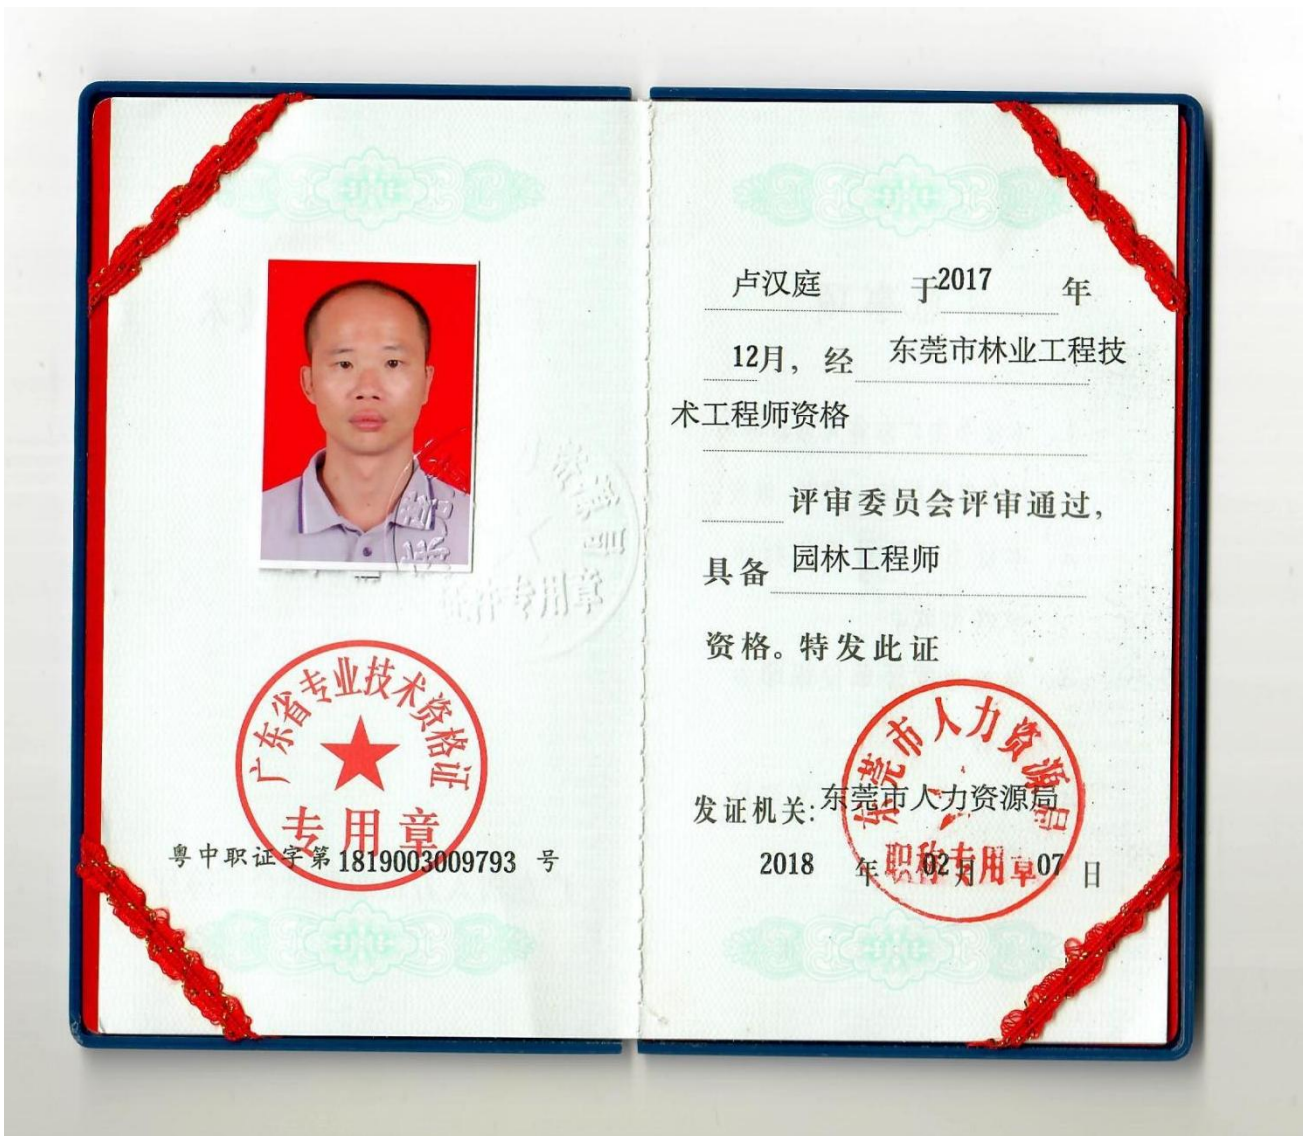 广东省专业技术资格证
专用章
粤中职证字第1819003009793 号
卢汉庭 于2017 年
12月，经 东莞市林业工程技
术工程师资格
评审委员会评审通过，
具备 园林工程师
资格。特发此证
东莞市人力资源局
发证机关:东莞市人力资源局
职称专用章
2018 年 02月 07 日